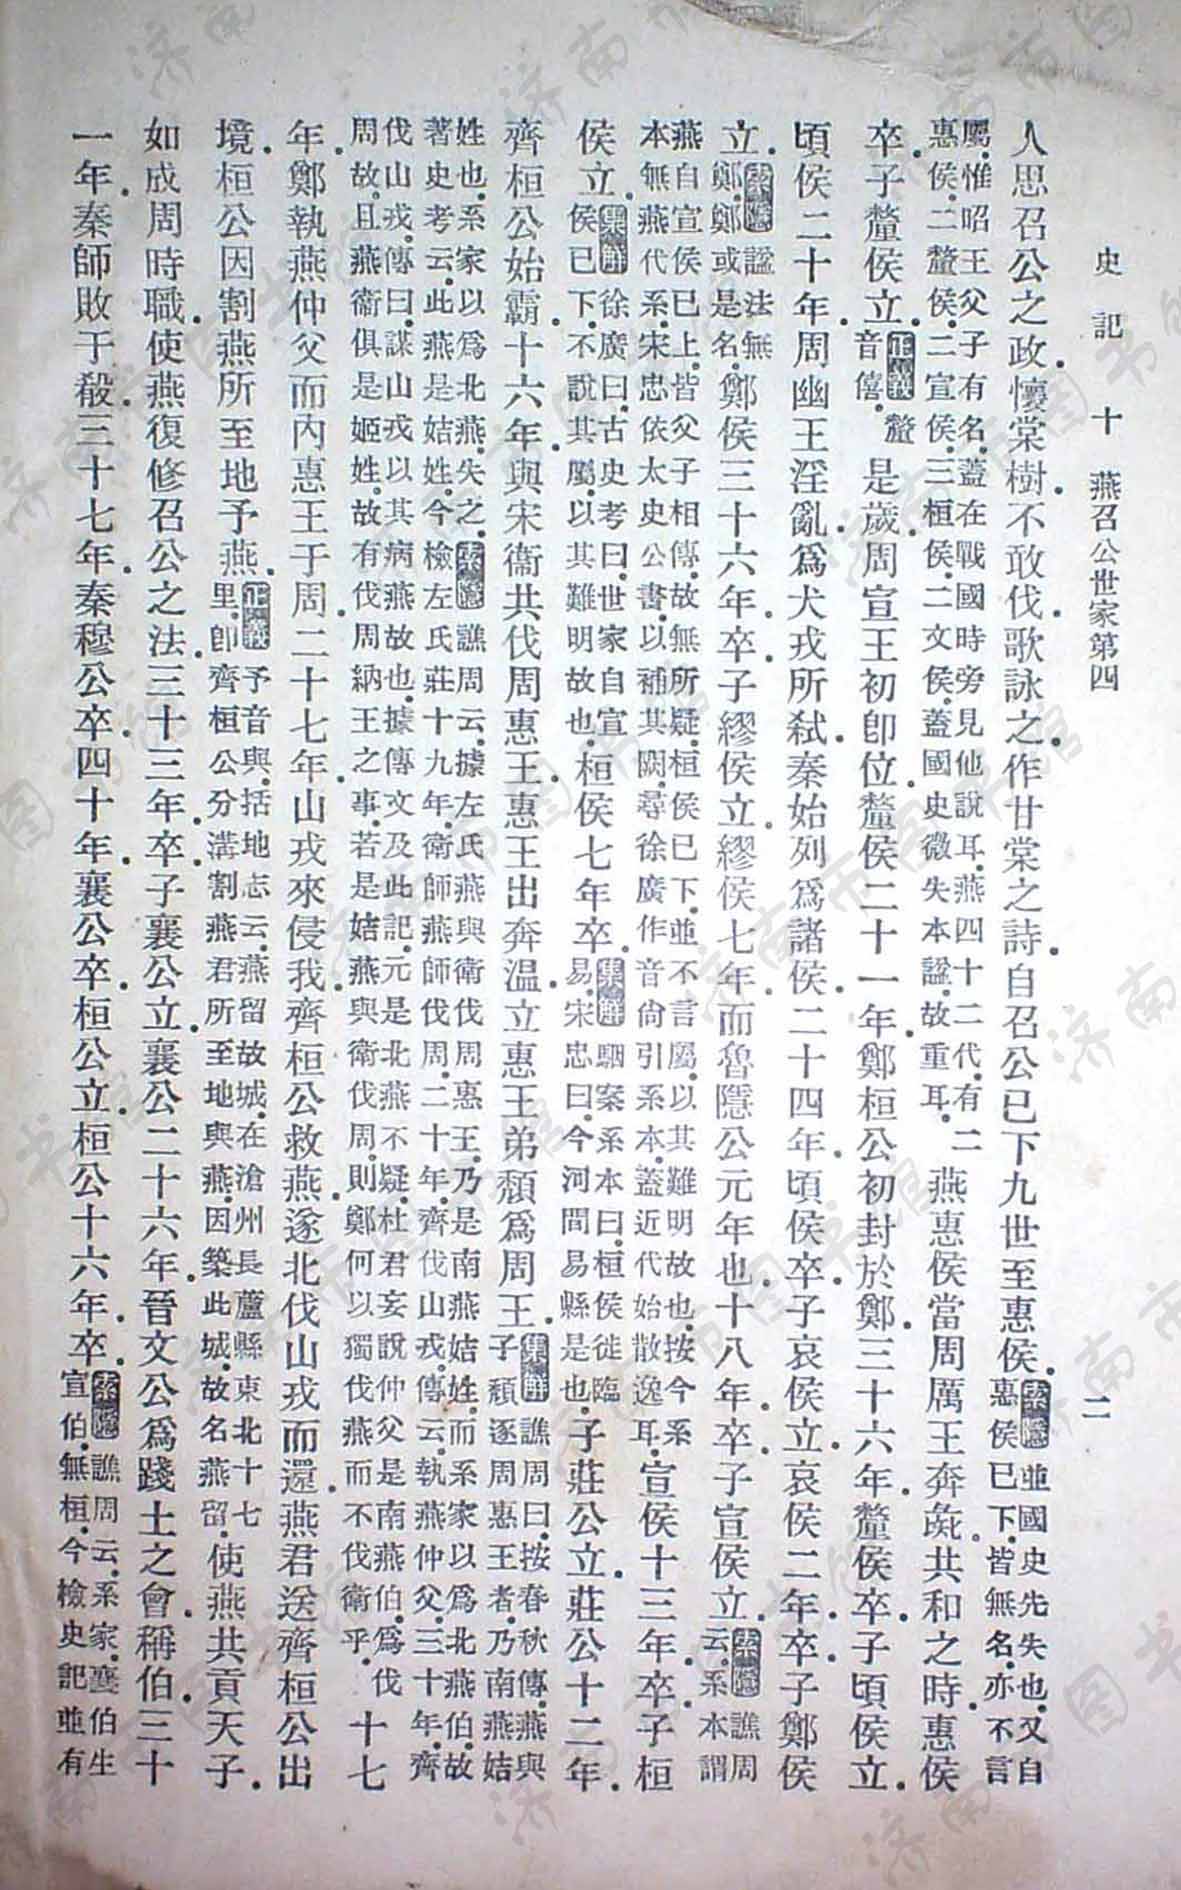 史記十 燕召公世家第四 二
人思召公之政。懷棠樹。不敢伐。歌詠之。作甘棠之詩。自召公已下九世至惠侯。索隱並國史先失也。又自惠侯已下。皆無名。亦不言
屬。惟昭王父子有名。蓋在戰國時旁見他說耳。燕四十二代。有二惠侯。二釐侯。二宣侯。三桓侯。二文侯。蓋國史微失本謚。故重耳。燕惠侯當周厲王奔彘。共和之時。惠侯
卒。子釐侯立。正義釐音僖。是歲。周宣王初卽位。釐侯二十一年。鄭桓公初封於鄭。三十六年。釐侯卒。子頃侯立。
頃侯二十年。周幽王淫亂。爲犬戎所弑。秦始列爲諸侯。二十四年。頃侯卒。子哀侯立。哀侯二年。卒。子鄭侯
立。索隱謚法無鄭。鄭或是名。鄭侯三十六年。卒。子繆侯立。繆侯七年。而魯隱公元年也。十八年。卒。子宣侯立。索隱譙周云。系本謂
燕自宣侯已上。皆父子相傳。故無所疑。桓侯已下。並不言屬。以其難明故也。按今系本無燕代系。宋忠依太史公書。以補其闕。尋徐廣作音。尙引系本。蓋近代始散逸耳。宣侯十三年。卒。子桓
侯立。集解徐廣曰。古史考曰。世家自宣侯已下。不說其屬。以其難明故也。桓侯七年卒。集解駰案系本曰。桓侯徙臨易。宋忠曰。今河間易縣是也。子莊公立。莊公十二年。
齊桓公始霸。十六年。與宋衞共伐周惠王。惠王出奔溫。立惠王弟穨爲周王。集解譙周曰。按春秋傳。燕與子頹逐周惠王者。乃南燕姞
姓也。系家以爲北燕。失之。索隱譙周云。據左氏燕與衛伐周惠王。乃是南燕姞姓。而系家以爲北燕伯。故著史考云。此燕是姞姓。今檢左氏莊十九年。衛師燕師伐周。二十年。齊伐山戎。傳云。執燕仲父。三十年。齊
伐山戎。傳曰。謀山戎。以其病燕故也。據傳文及此記。元是北燕不疑。杜君妄說仲父是南燕伯。爲伐周故。且燕衞俱是姬姓。故有伐周納王之事。若是姞燕與衛伐周。則鄭何以獨伐燕而不伐衛乎。十七
年。鄭執燕仲父而內惠王于周。二十七年。山戎來侵我。齊桓公救燕。遂北伐山戎而還。燕君送齊桓公出
境。桓公因割燕所至地予燕。正義予音與。括地志云。燕留故城。在滄州長蘆縣東北十七里。卽齊桓公分溝割燕君所至地與燕。因築此城。故名燕留。使燕共貢天子。
如成周時職。使燕復修召公之法。三十三年。卒。子襄公立。襄公二十六年。晉文公爲踐土之會。稱伯。三十
一年。秦師敗于殽。三十七年。秦穆公卒。四十年。襄公卒。桓公立。桓公十六年。卒。索隱譙周云。系家。襄伯生宣伯。無桓。今檢史記並有